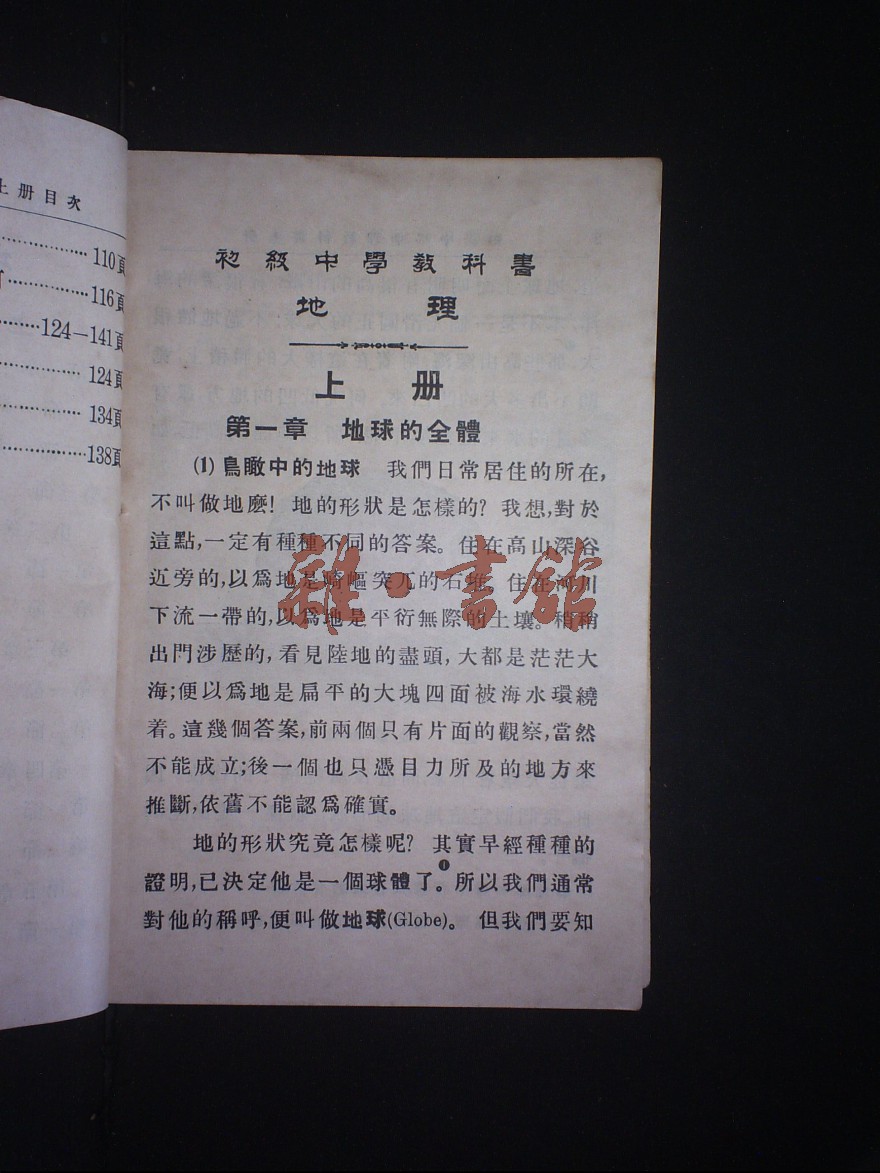 上册目次
110頁
116頁
124—141頁
124頁
134頁
138頁
初級中學教科書
地理
上册
第一章 地球的全體
(1) 鳥瞰中的地球 我們日常居住的所在,
不叫做地麽! 地的形狀是怎樣的? 我想,對於
這點,一定有種種不同的答案。住在高山深谷
近旁的,以爲地是崎嶇突兀的石堆。住在河川
下流一帶的,以爲地是平衍無際的土壤。稍稍
出門涉歷的,看見陸地的盡頭,大都是茫茫大
海;便以爲地是扁平的大塊四面被海水環繞
着。這幾個答案,前兩個只有片面的觀察,當然
不能成立;後一個也只憑目力所及的地方來
推斷,依舊不能認爲確實。
地的形狀究竟怎樣呢? 其實早經種種的
證明,已決定他是一個球體了❶。所以我們通常
對他的稱呼,便叫做地球(Globe)。 但我們要知
雜·書館